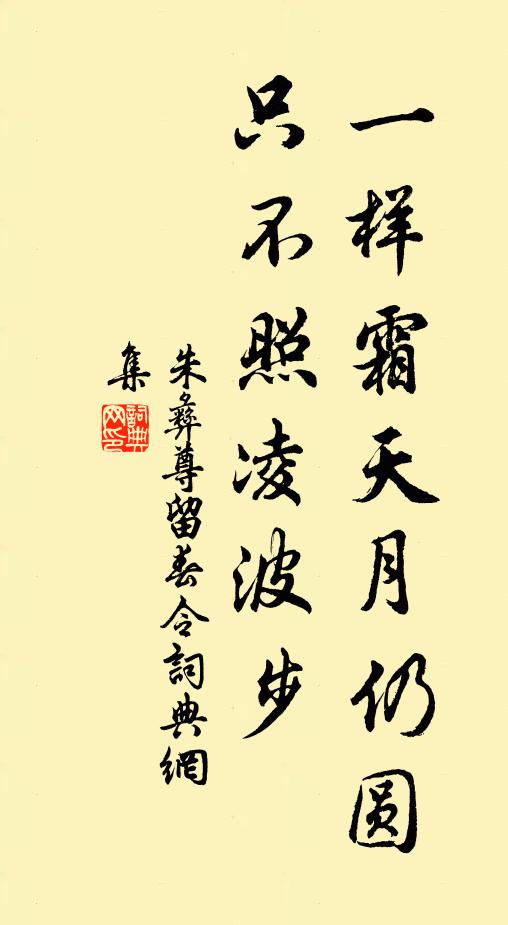 一样霜天月仍圆
只不照凌波步
朱彝尊留春令詞典網
集
詞典网印